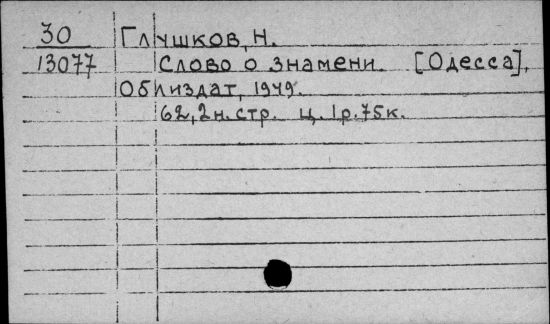 30 Глушков, Н.
13077 Слово о знамени. [Одесса],
Облиздат, 1949.
62, 2 н. стр. ц. 1 р. 75 к.